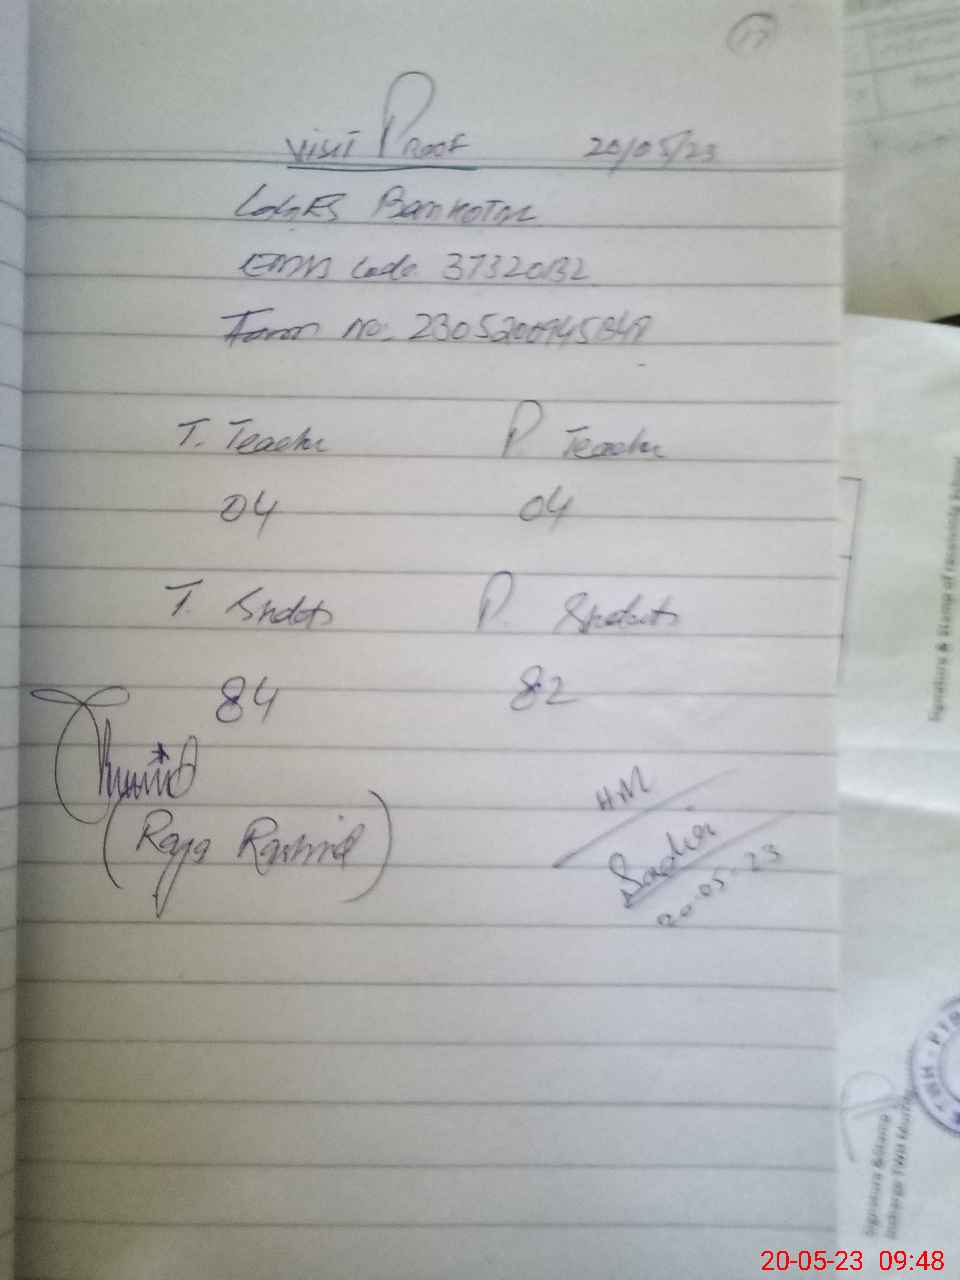 17
Visit Proof 20/05/23
Bankotli
Code 37320132
Form no. 2305200945849
T. Teacher P. Teacher
04 04
T. Stdts P. Students
84 82
(Raja Rashid)
HM
Sadia
20-05-23
Signature & Stamp of receiving
TBH - PTB
Signature & Stamp
Incharge TWH
20-05-23 09:48